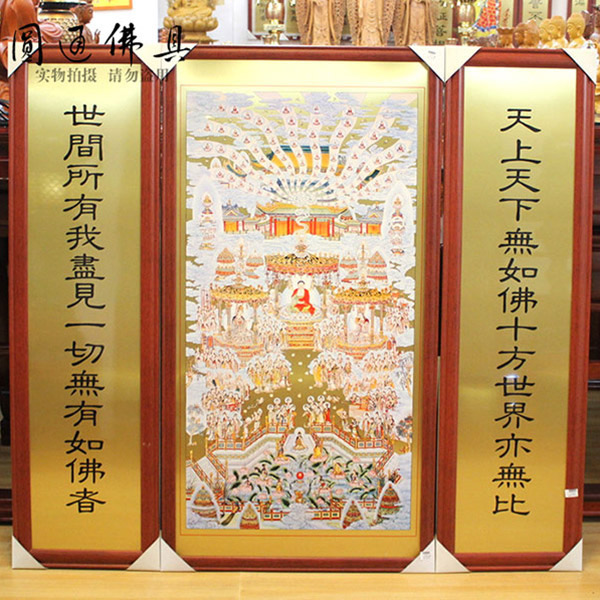 圓通佛具
实物拍摄 请勿盗用
天上天下無如佛十方世界亦無比
世間所有我盡見一切無有如佛者